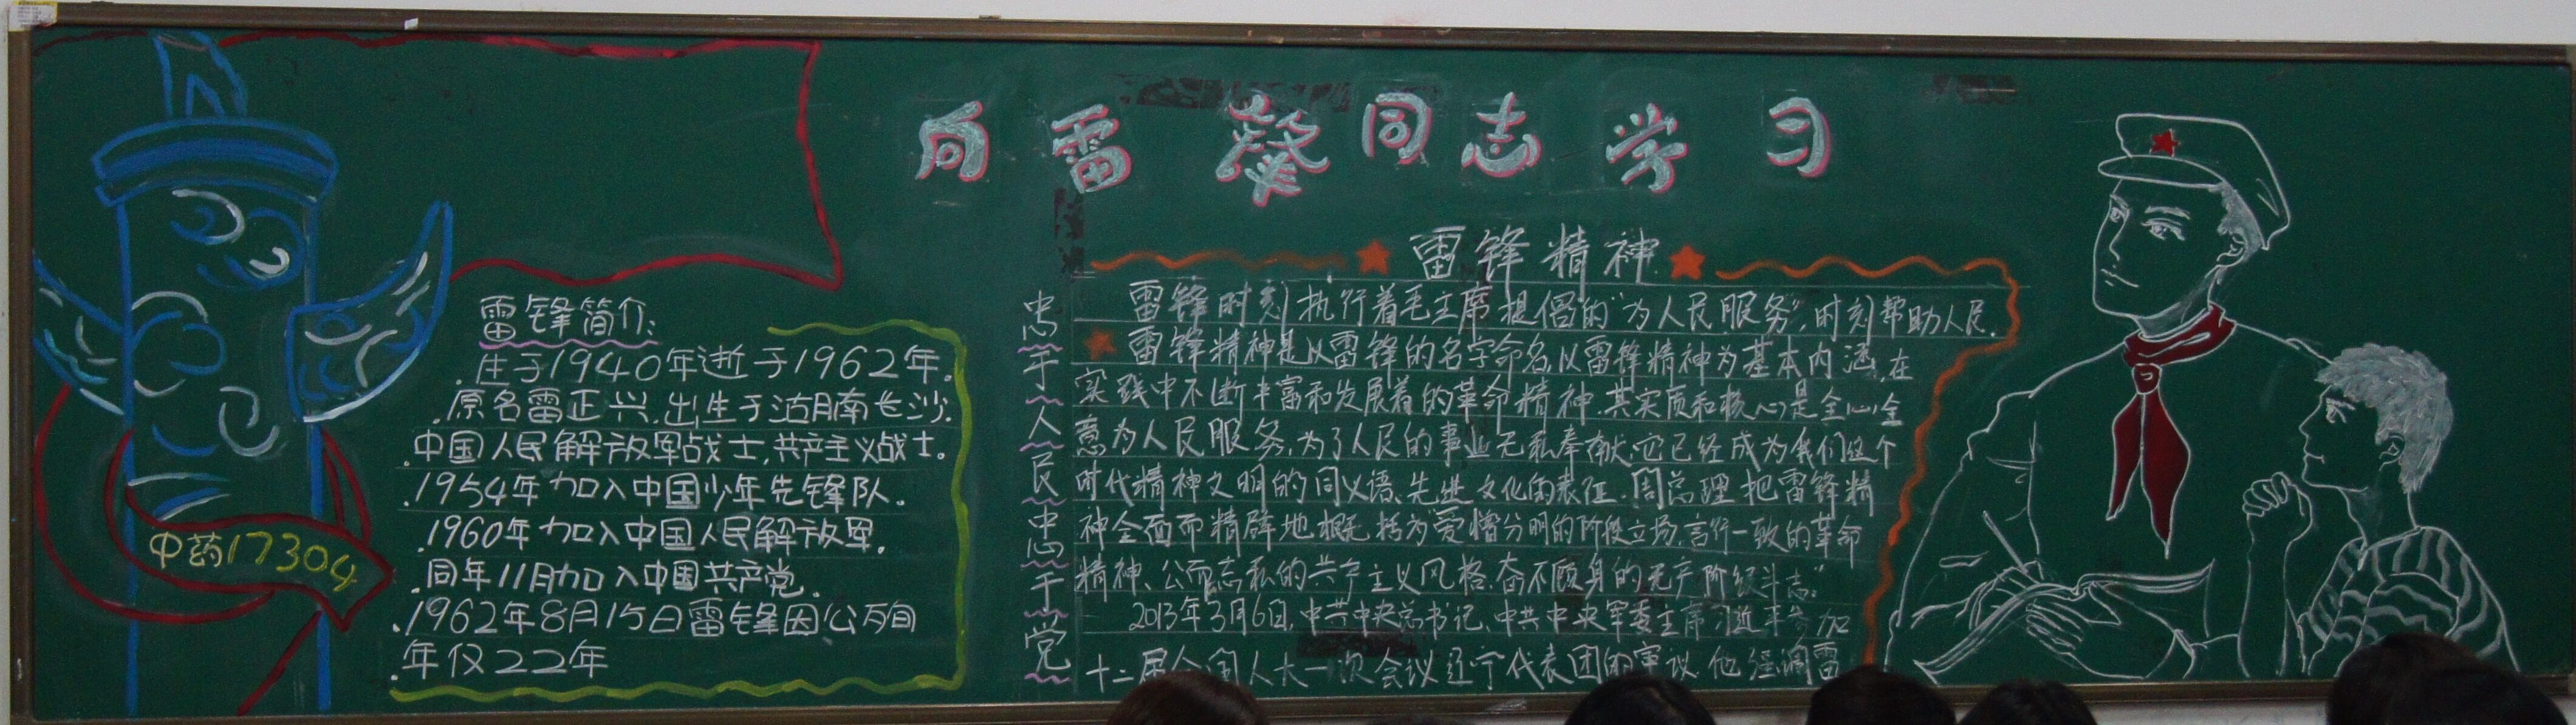 向雷鏧同志学习
雷锋简介:
生于1940年逝于1962年.
原名雷正兴.出生于沽月南长沙.
中国人民解放军战士,共产主义战士.
1954年加入中国少年先锋队.
1960年加入中国人民解放军.
同年11月加入中国共产党.
1962年8月15日雷锋因公殉
年仅22年
中药17304
忠于人民忠于党
雷锋精神
雷锋时刻执行着毛主席提倡的“为人民服务”,时刻帮助人民.
雷锋精神是以雷锋的名字命名,以雷锋精神为基本内涵,在
实践中不断丰富和发展着的革命精神.其实质和核心是全心全
意为人民服务,为了人民的事业无私奉献.它已经成为我们这个
时代精神文明的同义语、先进文化的表征.周总理把雷锋精
神全面而精辟地概括为“爱憎分明的阶级立场,言行一致的革命
精神、公而忘私的共产主义风格,奋不顾身的无产阶级斗志.”
2013年3月6日,中共中央总书记、中共中央军委主席习近平参加
十二届全国人大一次会议辽宁代表团的审议.他强调雷